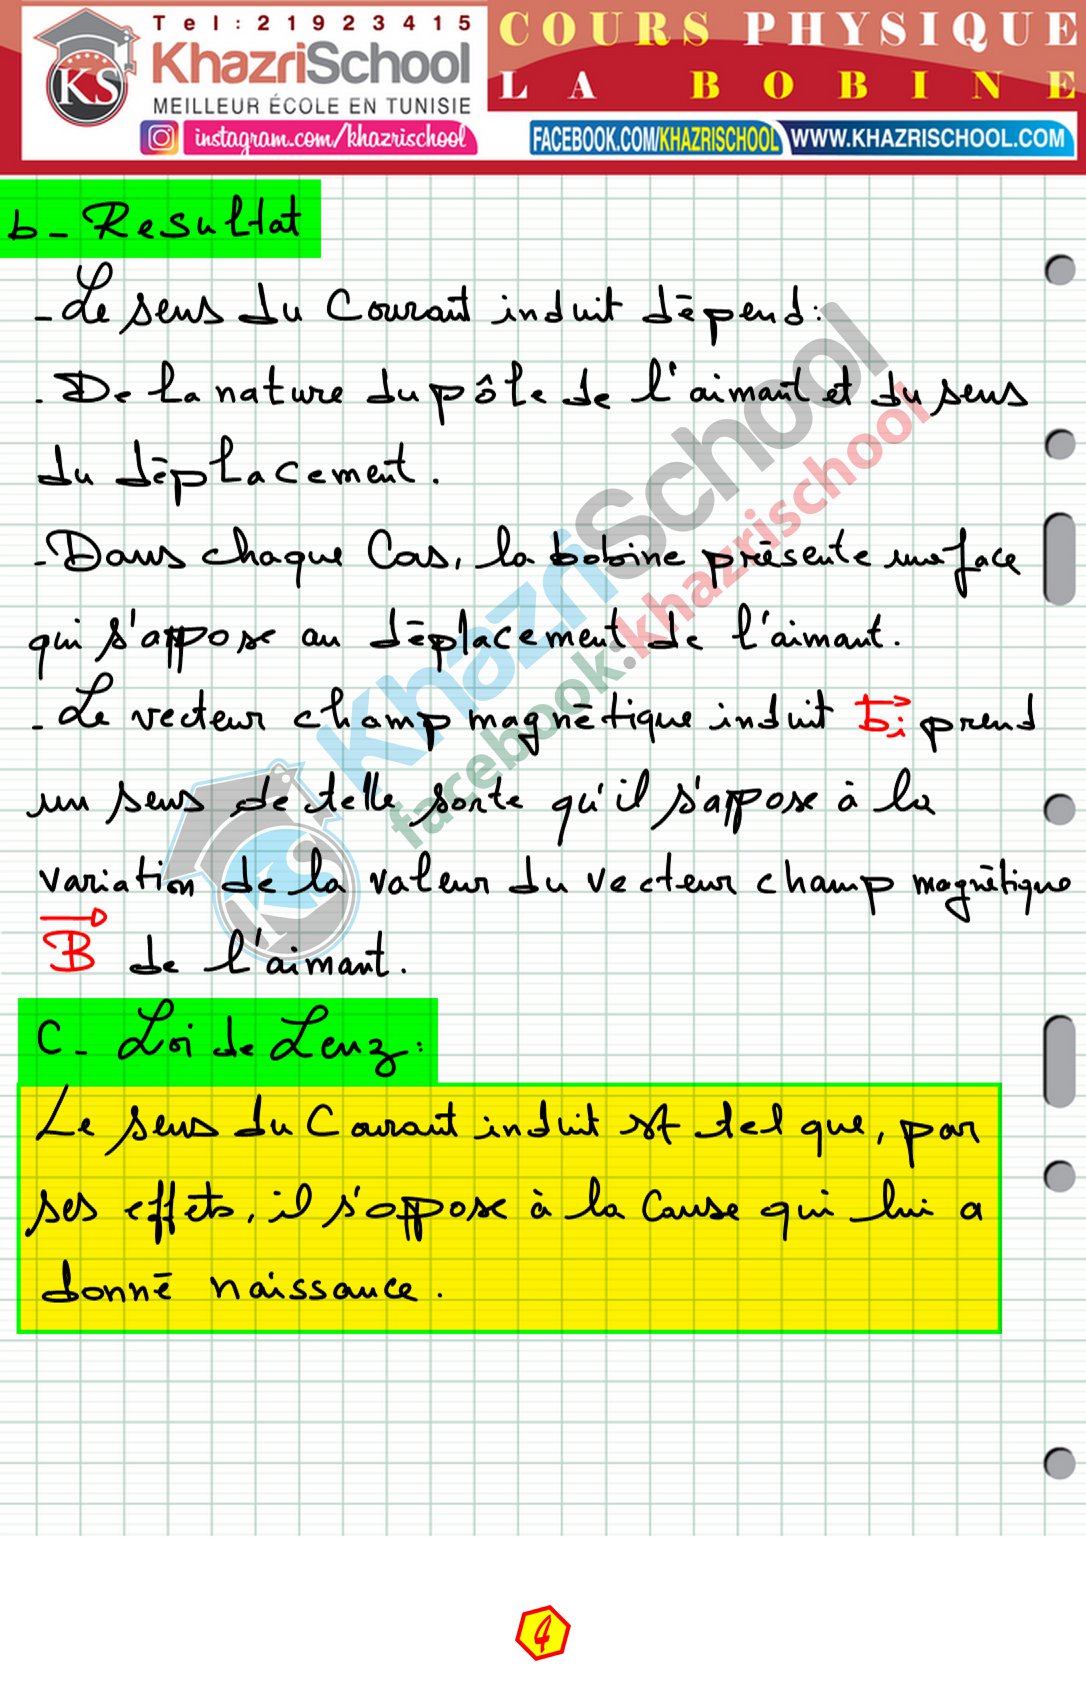 Tel: 21923415
KhazriSchool
MEILLEUR ÉCOLE EN TUNISIE
KS
instagram.com/khazrischool
COURS PHYSIQUE
LA BOBINE
FACEBOOK.COM/KHAZRISCHOOL
WWW.KHAZRISCHOOL.COM
b- Resultat
- Le sens du Courant induit dépend:
. De la nature du pôle de l'aimant et du sens
du déplacement.
- Dans chaque Cas, la bobine présente une face
qui s'oppose au déplacement de l'aimant.
- Le vecteur champ magnétique induit bi prend
un sens de telle sorte qu'il s'oppose à la
variation de la valeur du vecteur champ magnétique
B de l'aimant.
C- Loi de Lenz:
Le sens du Courant induit est tel que, par
ses effets, il s'oppose à la Cause qui lui a
donné naissance.
KhazriSchool
facebook:khazrischool
KS
4